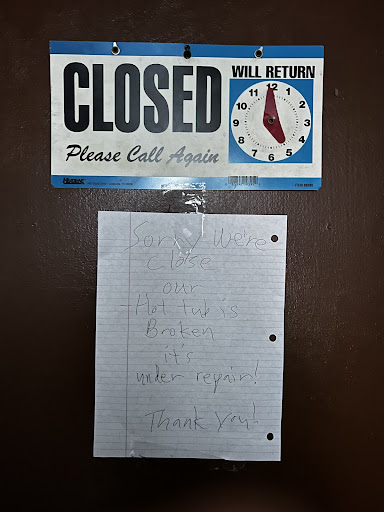 CLOSED
WILL RETURN
12
1
2
3
4
5
6
7
8
9
10
11
Please Call Again
Sorry We're
close
our
Hot tub is
Broken
it's
under repair!
Thank You!